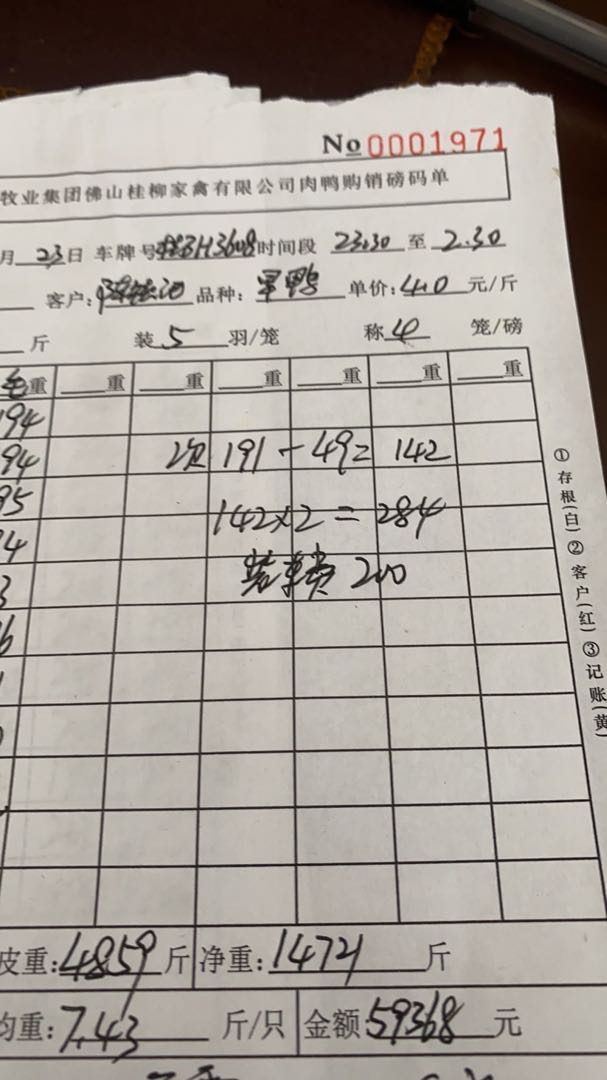 No 0001971
牧业集团佛山桂柳家禽有限公司肉鸭购销磅码单
月 23 日 车牌号 H3608 时间段 23:30 至 2.30
客户: 品种: 鸭 单价: 4.0 元/斤
斤 装 5 羽/笼 称 4 笼/磅
毛重 重 重 重 重 重 重
194
94 次 191-49= 142
95
4 142×2=284
3 装车费 200
6
皮重: 4859 斤 净重: 14721 斤
均重: 7.43 斤/只 金额: 59368 元
①存根(白)②客户(红)③记账(黄)